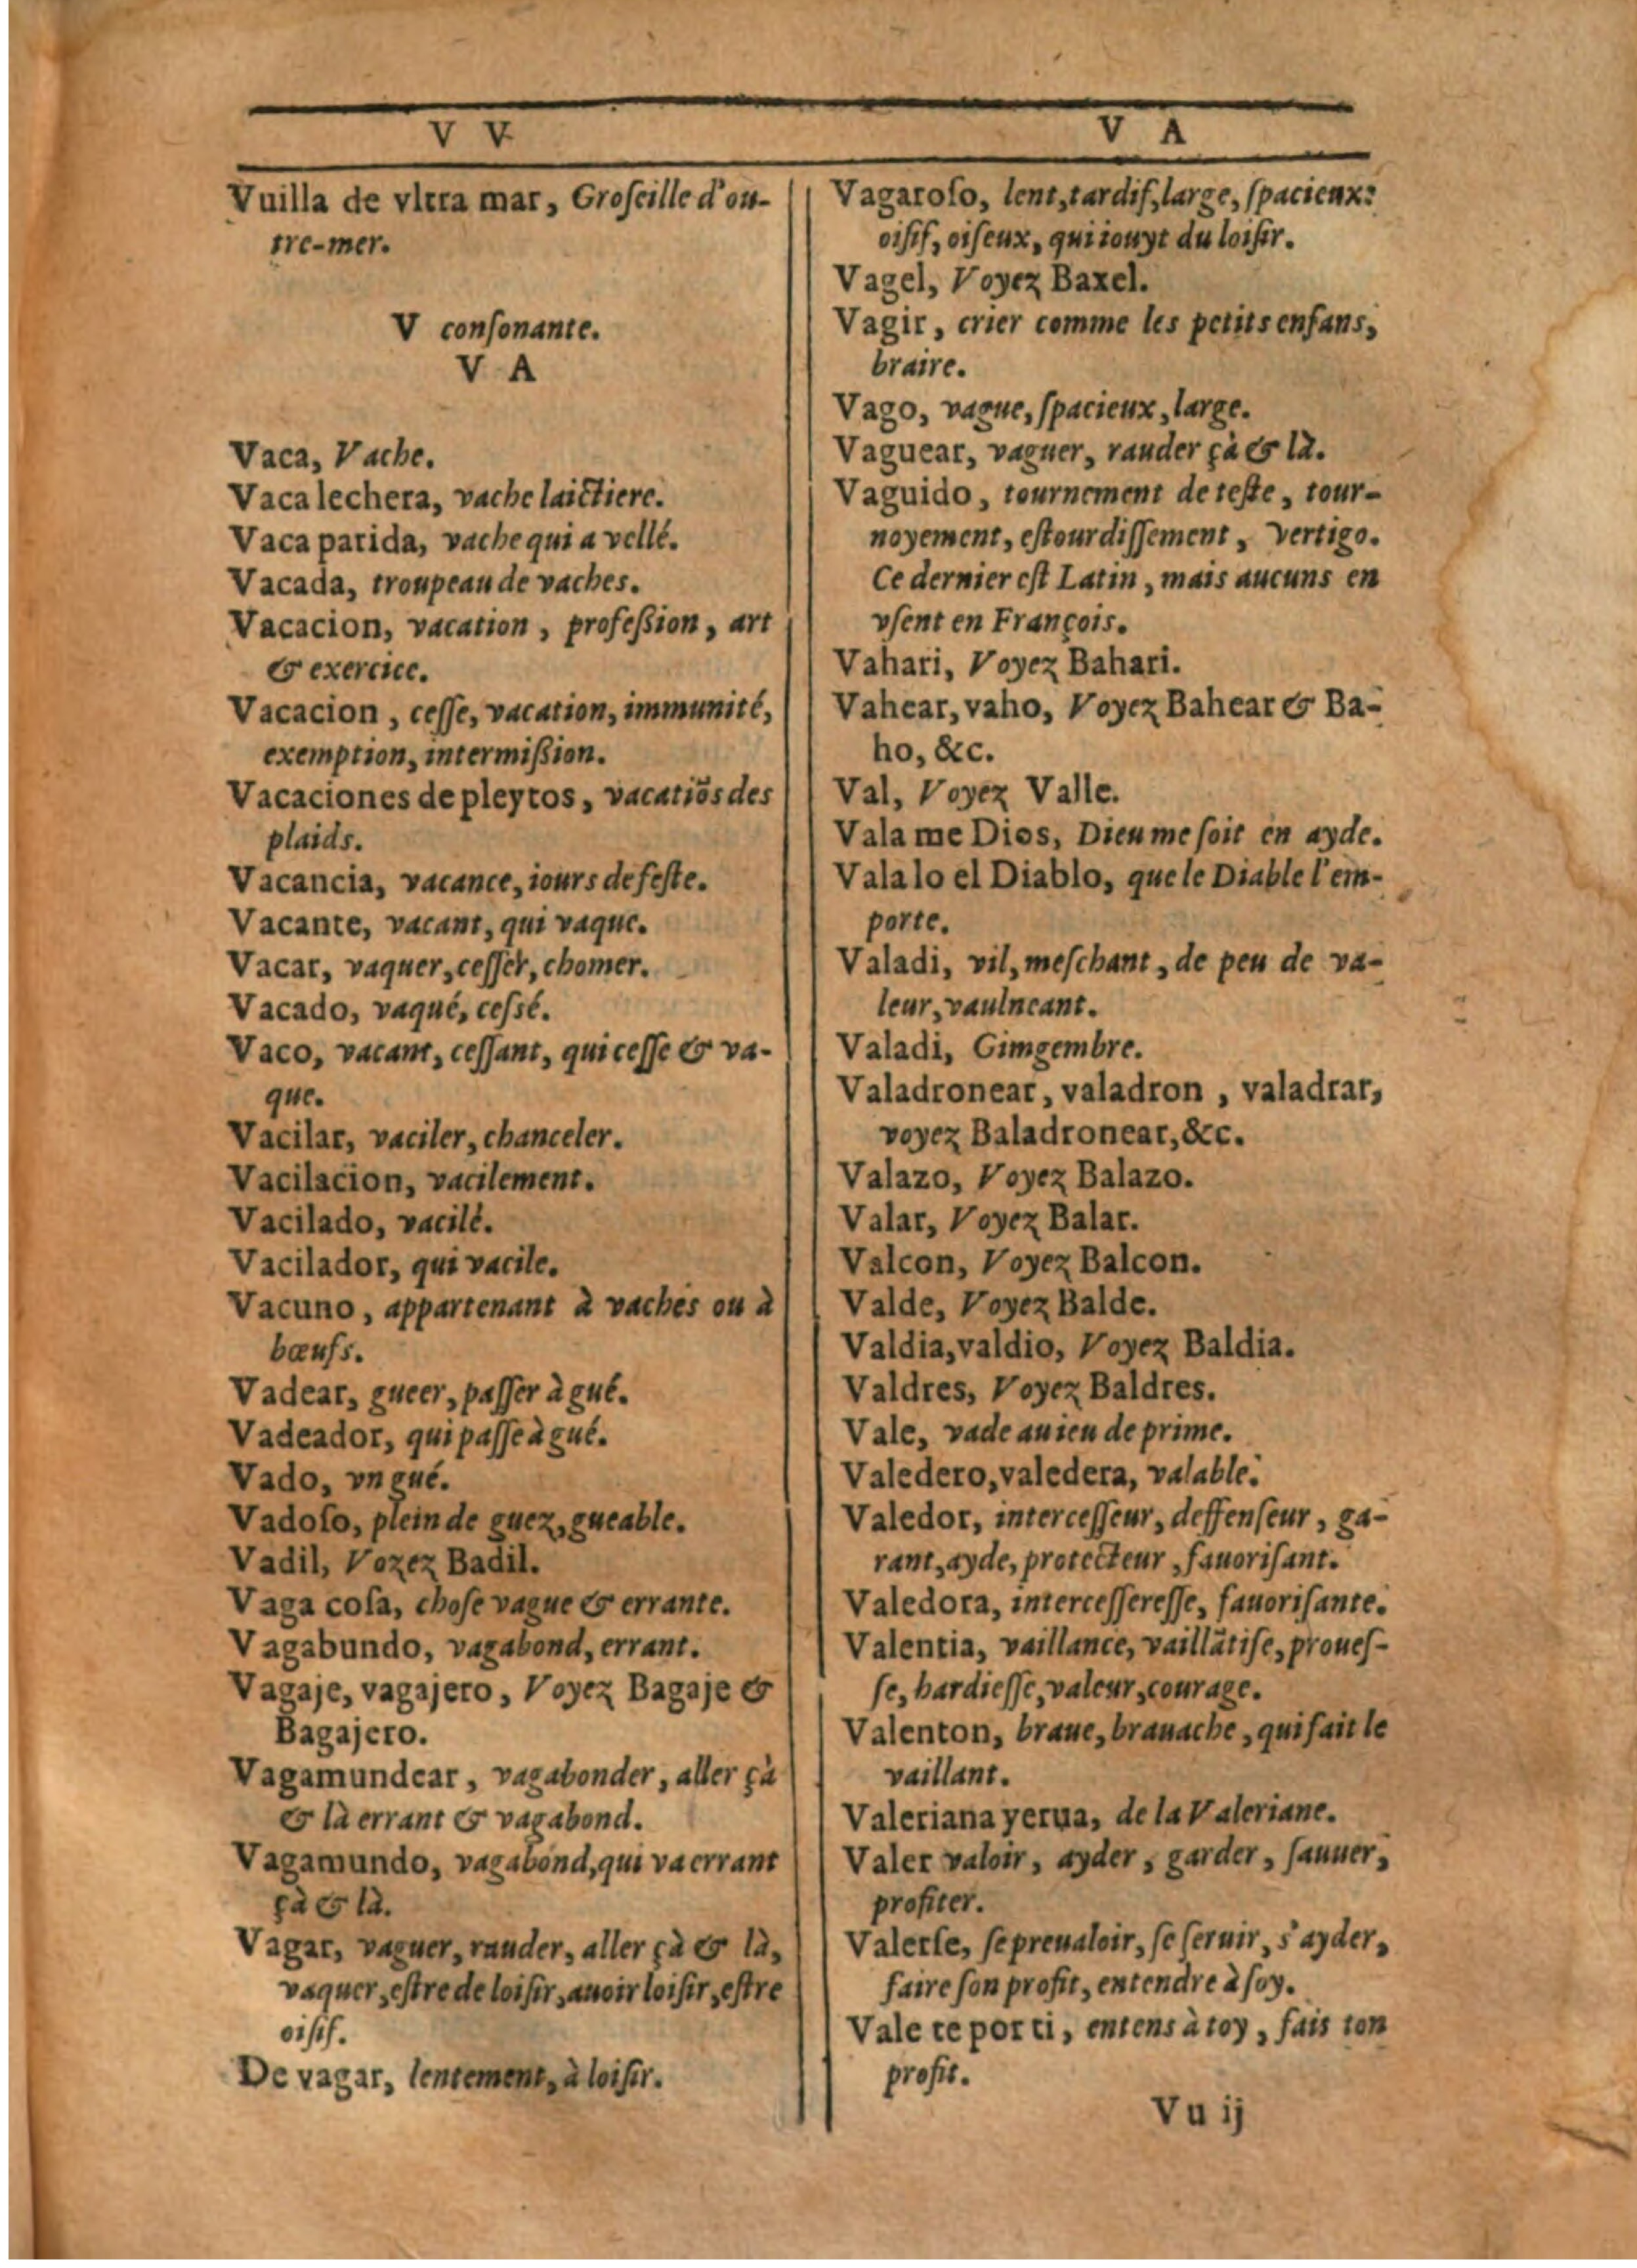 V V
Vuilla de vltra mar, Groſeille d'ou-
tre-mer.
V conſonante.
V A
Vaca, Vache.
Vaca lechera, vache laictiere.
Vaca parida, vache qui a vellé.
Vacada, troupeau de vaches.
Vacacion, vacation, profeſsion, art
& exercice.
Vacacion, ceſſe, vacation, immunité,
exemption, intermiſsion.
Vacaciones de pleytos, vacatiõs des
plaids.
Vacancia, vacance, iours de feſte.
Vacante, vacant, qui vaque.
Vacar, vaquer, ceſſer, chomer.
Vacado, vaqué, ceſsé.
Vaco, vacant, ceſſant, qui ceſſe & va-
que.
Vacilar, vaciler, chanceler.
Vacilacion, vacilement.
Vacilado, vacilé.
Vacilador, qui vacile.
Vacuno, appartenant à vaches ou à
bœufs.
Vadear, gueer, paſſer à gué.
Vadeador, qui paſſe à gué.
Vado, vn gué.
Vadoſo, plein de guez, gueable.
Vadil, Vozez Badil.
Vaga coſa, choſe vague & errante.
Vagabundo, vagabond, errant.
Vagaje, vagajero, Voyez Bagaje &
Bagajero.
Vagamundear, vagabonder, aller çà
& là errant & vagabond.
Vagamundo, vagabond, qui va errant
çà & là.
Vagar, vaguer, rauder, aller çà & là,
vaquer, eſtre de loiſir, auoir loiſir, eſtre
oiſif.
De vagar, lentement, à loiſir.
V A
Vagaroſo, lent, tardif, large, ſpacieux:
oiſif, oiſeux, qui iouyt du loiſir.
Vagel, Voyez Baxel.
Vagir, crier comme les petits enfans,
braire.
Vago, vague, ſpacieux, large.
Vaguear, vaguer, rauder çà & là.
Vaguido, tournement de teſte, tour-
noyement, eſtourdiſſement, vertigo.
Ce dernier eſt Latin, mais aucuns en
vſent en François.
Vahari, Voyez Bahari.
Vahear, vaho, Voyez Bahear & Ba-
ho, &c.
Val, Voyez Valle.
Vala me Dios, Dieu me ſoit en ayde.
Vala lo el Diablo, que le Diable l'em-
porte.
Valadi, vil, meſchant, de peu de va-
leur, vaulneant.
Valadi, Gimgembre.
Valadronear, valadron, valadrar,
voyez Baladronear, &c.
Valazo, Voyez Balazo.
Valar, Voyez Balar.
Valcon, Voyez Balcon.
Valde, Voyez Balde.
Valdia, valdio, Voyez Baldia.
Valdres, Voyez Baldres.
Vale, vade au ieu de prime.
Valedero, valedera, valable.
Valedor, interceſſeur, deffenſeur, ga-
rant, ayde, protecteur, fauoriſant.
Valedora, interceſſereſſe, fauoriſante.
Valentia, vaillance, vaillãtiſe, proueſ-
ſe, hardieſſe, valeur, courage.
Valenton, braue, brauache, qui fait le
vaillant.
Valeriana yerua, de la Valeriane.
Valer valoir, ayder, garder, ſauuer,
profiter.
Valerſe, ſe preualoir, ſe ſeruir, s'ayder,
faire ſon profit, entendre à ſoy.
Vale te por ti, entens à toy, fais ton
profit.
Vu ij